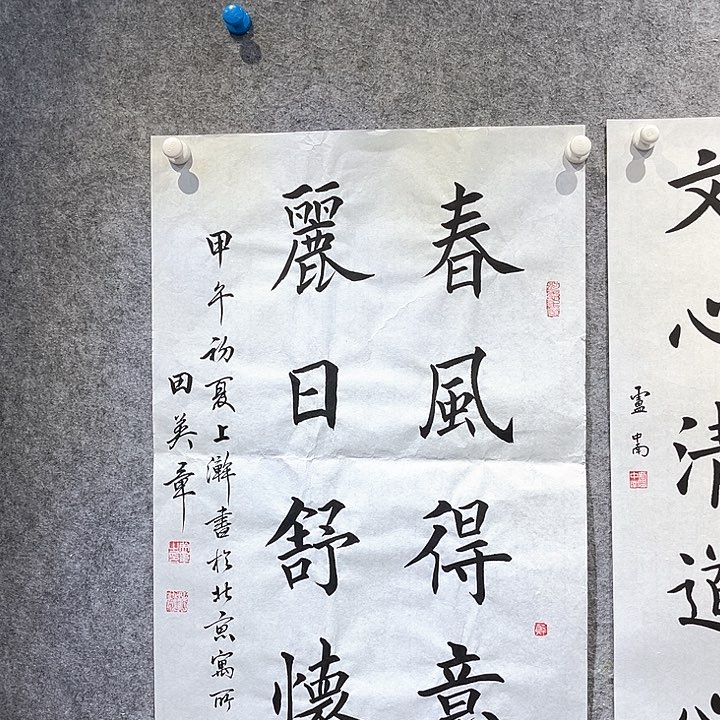 春風得意
麗日舒懷
甲午初夏上澣書於北京寓所
田英章
文心清道
盧中南